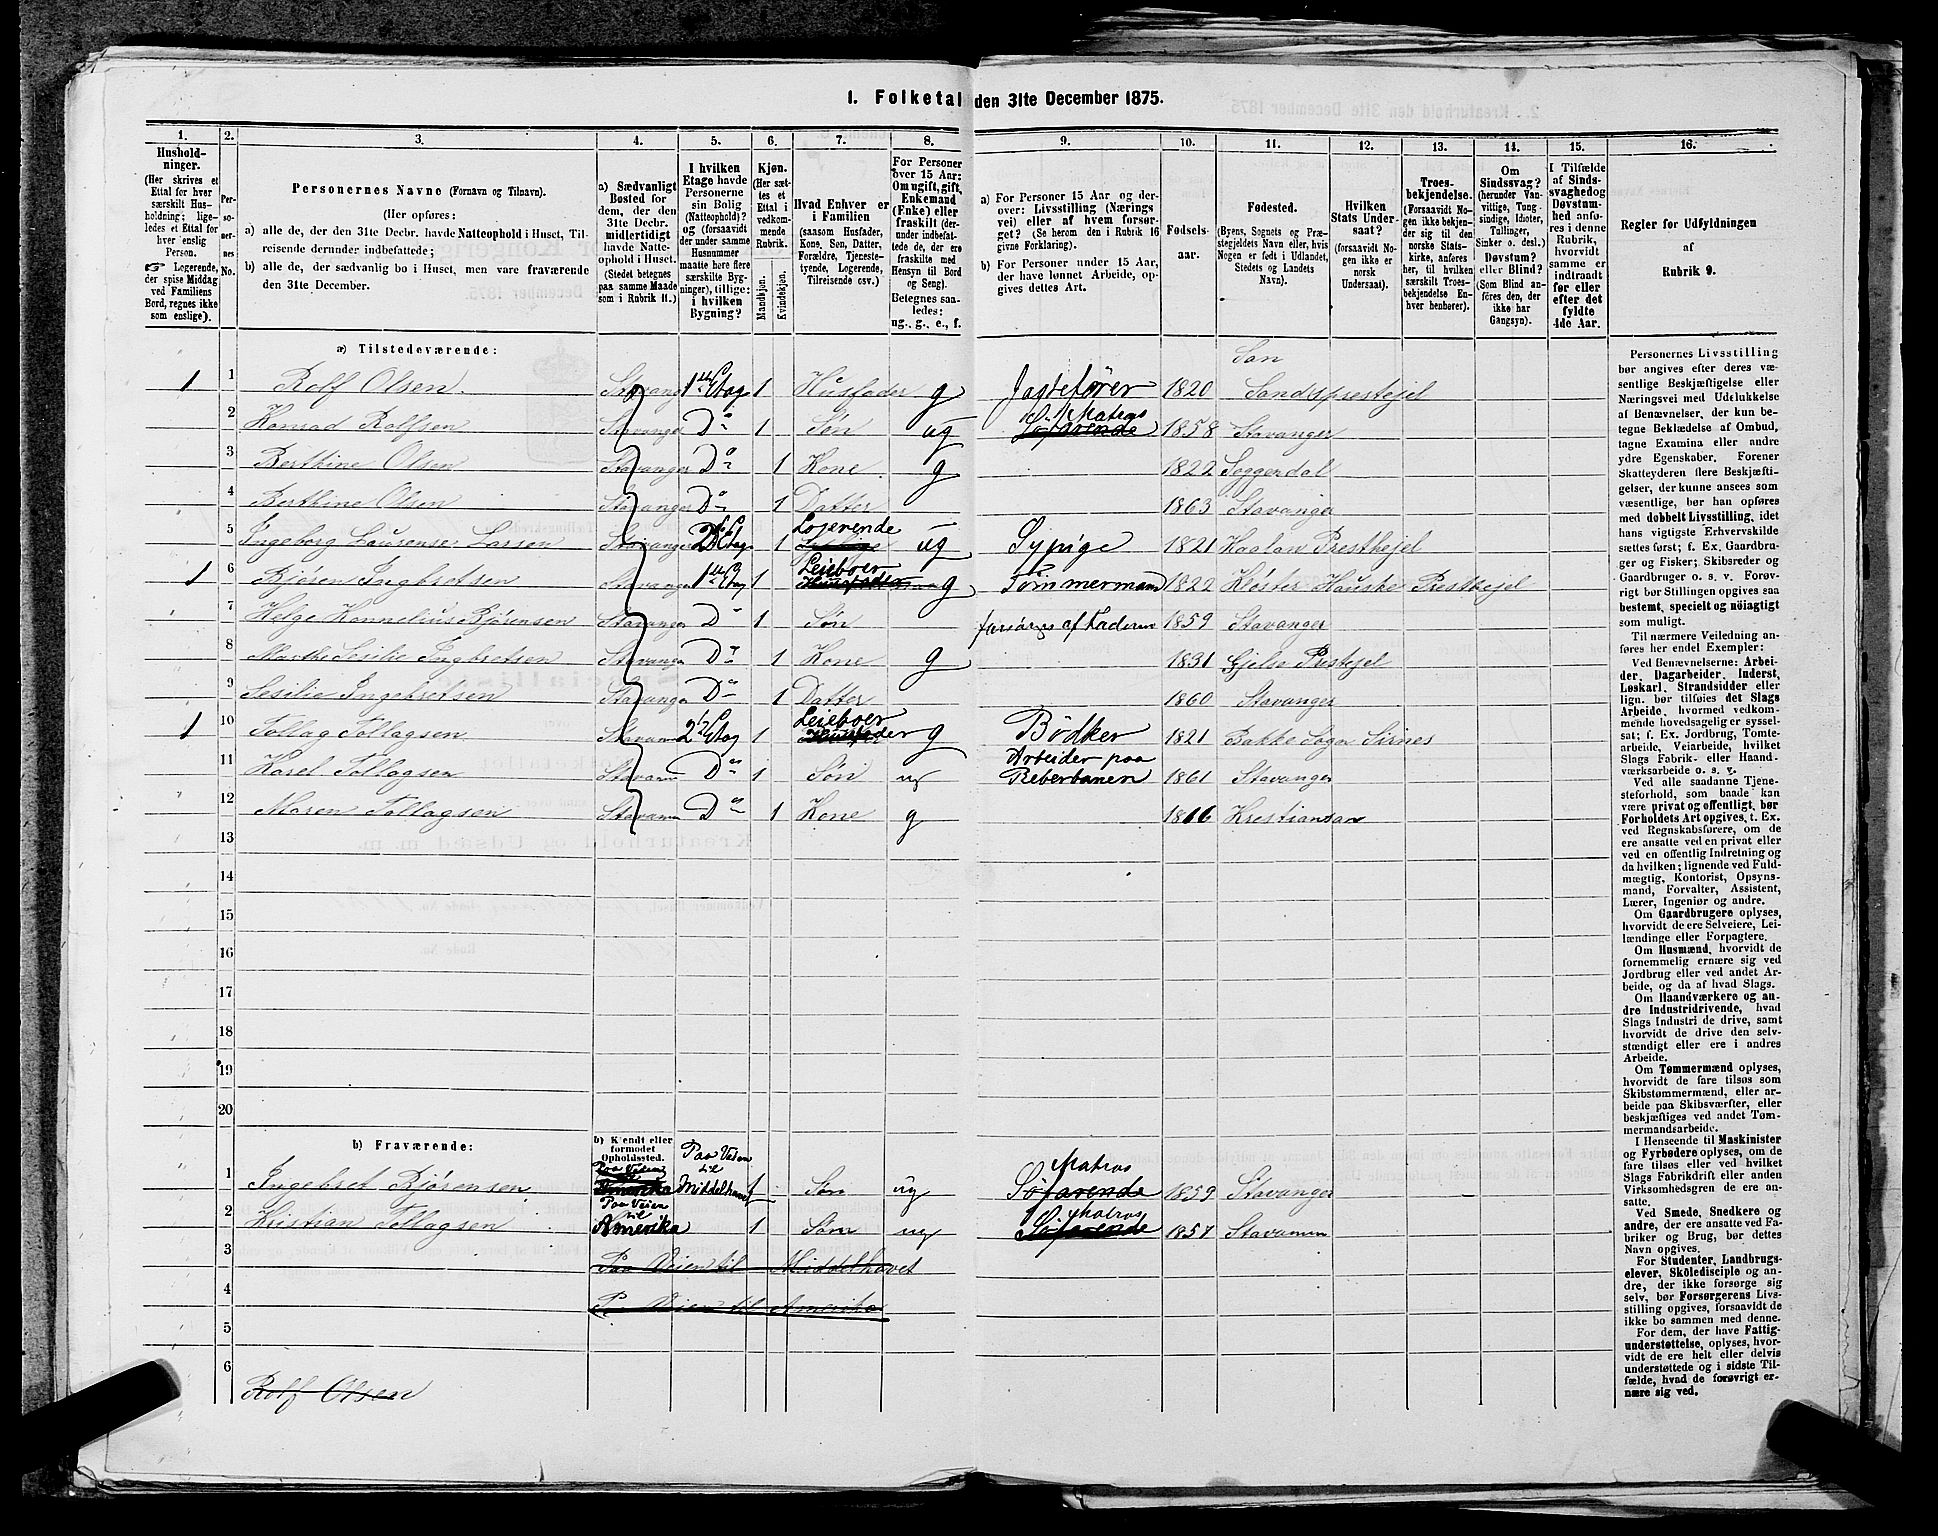 1. Folketal den 31te December 1875.
1. 2. 3. 4. 5. 6. 7. 8. 9. 10. 11. 12. 13. 14. 15. 16.
Hushold-
ninger.
(Her skrives et
Ettal for hver
særskilt Hus-
holdning; lige-
ledes et Ettal for
hver enslig
Person.
☞ Logerende,
der spise Middag
ved Familiens
Bord, regnes ikke
som enslige).
Per-
so-
ner-
nes
No.
Personernes Navne (Fornavn og Tilnavn).
(Her opføres:
a) alle de, der den 31te Decbr. havde Natteophold i Huset, Til-
reisende derunder indbefattede;
b) alle de, der sædvanlig bo i Huset, men vare fraværende
den 31te December.
a) Sædvanligt
Bosted for
dem, der den
31te Decbr.
midlertidigt
havde Natte-
ophold i Huset.
(Stedet betegnes
paa samme Maade
som i Rubrik 11.)
I hvilken
Etage havde
Personerne
sin Bolig
(Natteophold)?
og (forsaavidt
der under samme
Husnummer
maatte høre flere
særskilte Byg-
ninger), tillige:
i hvilken
Bygning?
Kjøn.
(Her sæt-
tes et
Ettal i
vedkom-
mende
Rubrik.
Mandkjøn.
Kvindekjøn.
Hvad Enhver er
i Familien
(saasom Husfader,
Kone, Søn, Datter,
Forældre, Tjeneste-
tyende, Logerende,
Tilreisende osv.)
For Personer
over 15 Aar:
Om ugift, gift,
Enkemand
(Enke) eller
fraskilt (der-
under indbefat-
tede de, der ere
fraskilte med
Hensyn til Bord
og Seng).
Betegnes saa-
ledes:
ug., g., e., f.
a) For Personer 15 Aar og der-
over: Livsstilling (Nærings
vei) eller af hvem forsør-
get? (Se herom den i Rubrik 16
givne Forklaring).
b) For Personer under 15 Aar,
der have lønnet Arbeide, op-
gives dettes Art.
Fødsels-
aar.
Fødested.
(Byens, Sognets og Præ-
stegjeldets Navn eller, hvis
Nogen er født i Udlandet,
Stedets og Landets
Navn).
Hvilken
Stats Under-
saat?
(forsaavidt No-
gen ikke er
norsk
Undersaat).
Troes-
bekjendelse.
(Forsaavidt No-
gen ikke bekjen-
der sig til den
norske Stats-
kirke, anføres
her, til hvilken
særskilt Troes-
bekjendelse En-
hver henhører).
Om
Sindssvag?
(herunder Van-
vittige, Tung
sindige, Idioter,
Tullinger,
Sinker o. desl.)
Døvstum?
eller Blind?
(Som Blind an-
føres den, der
ikke har
Gangsyn).
I Tilfælde
af Sinds-
svaghed og
Døvstum-
hed anfø-
res i denne
Rubrik,
hvorvidt
samme er
indtraadt
før eller
efter det
fyldte
4de Aar.
Regler for Udfyldningen
af
Rubrik 9.
a) Tilstedeværende:
San
1 1 Rolf Olsen. Stavanger 1ste Etag 1 Husfader g Jagtefører 1820 Sandsprestejel
Matros
2 Konrad Rolfsen Stavanger Do 1 Søn ug Søfarende 1858 Stavanger
3 Berthine Olsen Stavanger Do 1 Kone g 1822 Soggendal
4 Berthine Olsen Stavanger Do 1 Datter 1863 Stavanger
Losjerende
5 Ingeborg Laurense Larsen Stavanger 2de Etag 1 ug Sypige 1821 Haaland Presthejel
Leieboer
1 6 Bjøren Ingbretsen Stavanger 1ste Etag 1 Husfader g Tømmermand 1822 Kloster Hauske Presthejel
7 Helge Kornelius Bjørensen Stavanger Do 1 Søn forsørges af Faderen 1859 Stavanger
8 Marthe Sesilie Ingbretsen Stavanger Do 1 Kone g 1831 Hjelse Prestejel
9 Sesilie Ingebretsen Stavanger Do 1 Datter 1860 Stavanger
Leieboer
1 10 Tollag Tollagsen 2 Etag 1 Husfader g Bødker 1821 Bakke Sogn Sirnes
Arbeider paa
11 Karel Tollagsen Do 1 Søn ug Reberbanen 1861 Stavanger
12 Maren Tollagsen Do 1 Kone g 1816 Krestiansan
13
14
15
16
17
18
19
20
b) Fraværende:
b) Kjendt eller
formodet
Opholdssted.
Paa Veien
til
Paa Veien
Matros
1 Ingebret Bjørensen Amerika Middelhavet 1 Søn ug Søfarende 1859 Stavanger
Paa Veien
til
Matros
2 Kristian Tollagsen Amerika 1 Søn ug Søfarende 1857
3 Paa Veien til Middelhavet
4 Paa Veien til Amerika
5
6
Rolf Olsen
Personernes Livsstilling
bør angives efter deres væ-
sentlige Beskjæftigelse eller
Næringsvei med Udelukkelse
af Benævnelser, der kun be-
tegne Beklædelse af Ombud,
tagne Examina eller andre
ydre Egenskaber. Forener
Skatteyderen flere Beskjæfti-
gelser, der kunne ansees som
væsentlige, bør han opføres
med dobbelt Livsstilling, idet
hans vigtigste Erhvervskilde
sættes først; f. Ex. Gaardbru-
ger og Fisker; Skibsreder og
Gaardbruger o. s. v. Forøv-
rigt bør Stillingen opgives saa
bestemt, specielt og nøiagtigt
som muligt.
Til nærmere Veiledning an-
føres her endel Exempler:
Ved Benævnelserne: Arbei-
der, Dagarbeider, Inderst,
Løskarl, Strandsidder eller
lign. bør tilføies det Slags
Arbeide, hvormed vedkom-
mende hovedsagelig er syssel-
sat; f. Ex. Jordbrug, Tomte-
arbeide, Veiarbeide, hvilket
Slags Fabrik- eller Haand-
værksarbeide o. s. v.
Ved alle saadanne Tjene-
steforhold, som baade kan
være privat og offentligt, bør
Forholdets Art opgives, t. Ex.
ved Regnskabsførere, om de
ere ansatte ved en privat eller
ved en offentlig Indretning og
da hvilken; lignende ved Fuld-
mægtig, Kontorist, Opsyns-
mand, Forvalter, Assistent,
Lærer, Ingeniør og andre.
Om Gaardbrugere oplyses,
hvorvidt de ere Selveiere, Lei-
lændinge eller Forpagtere.
Om Husmænd, hvorvidt de
fornemmelig ernære sig ved
Jordbrug eller ved andet Ar-
beide, og da af hvad Slags.
Om Haandværkere og an-
dre Industridrivende, hvad
Slags Industri de drive, samt
hvorvidt de drive den selv-
stændigt eller ere i andres
Arbeide.
Om Tømmermænd oplyses,
hvorvidt de fare tilsøs som
Skibstømmermænd, eller ar-
beide paa Skibsværfter, eller
beskjæftiges ved andet Tøm-
mermandsarbeide.
I Henseende til Maskinister
og Fyrbødere oplyses, om de
fare tilsøs eller ved hvilket
Slags Fabrikdrift eller anden
Virksomhedsgren de ere an-
satte.
Ved Smede, Snedkere og
andre, der ere ansatte ved Fa-
briker og Brug, bør dettes
Navn opgives.
For Studenter, Landbrugs-
elever, Skoledisciple og an-
dre, der ikke forsørge sig
selv, bør Forsørgerens Livs-
stilling opgives, forsaavidt de
ikke bo sammen med denne.
For dem, der have Fattig-
understøttelse, oplyses, hvor-
vidt de ere helt eller delvis
understøttede og i sidste Til-
fælde, hvad de forøvrigt er-
nære sig ved.